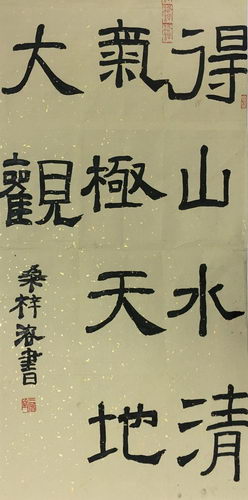 得山水清
氣極天地
大觀
桑梓海書